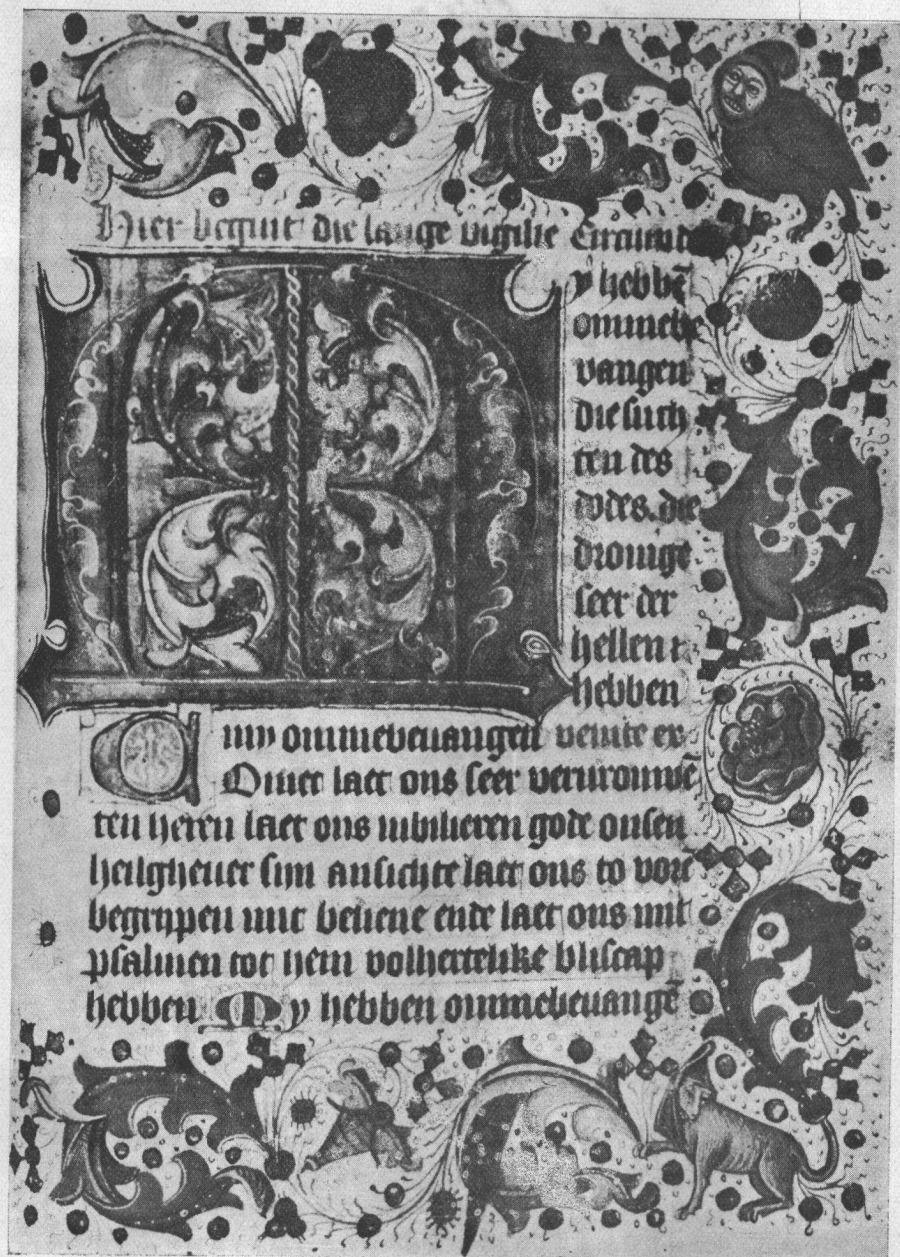 Hier begint die lange vigilie Circumde
M y hebbē
ommebe
vangen
die such
ten des
dodes. die
dronige
seer der
hellen :
hebben
my ommebevangen venite ex
Omet laet ons seer vervrouwē
ten heren laet ons iubilieren gode onsen
heilghever sijn ansichte laet ons to vorē
begrijpen mit beliene ende laet ons mit
psalmen tot hem volhertelike bliscap
hebben My hebben ommebevangē